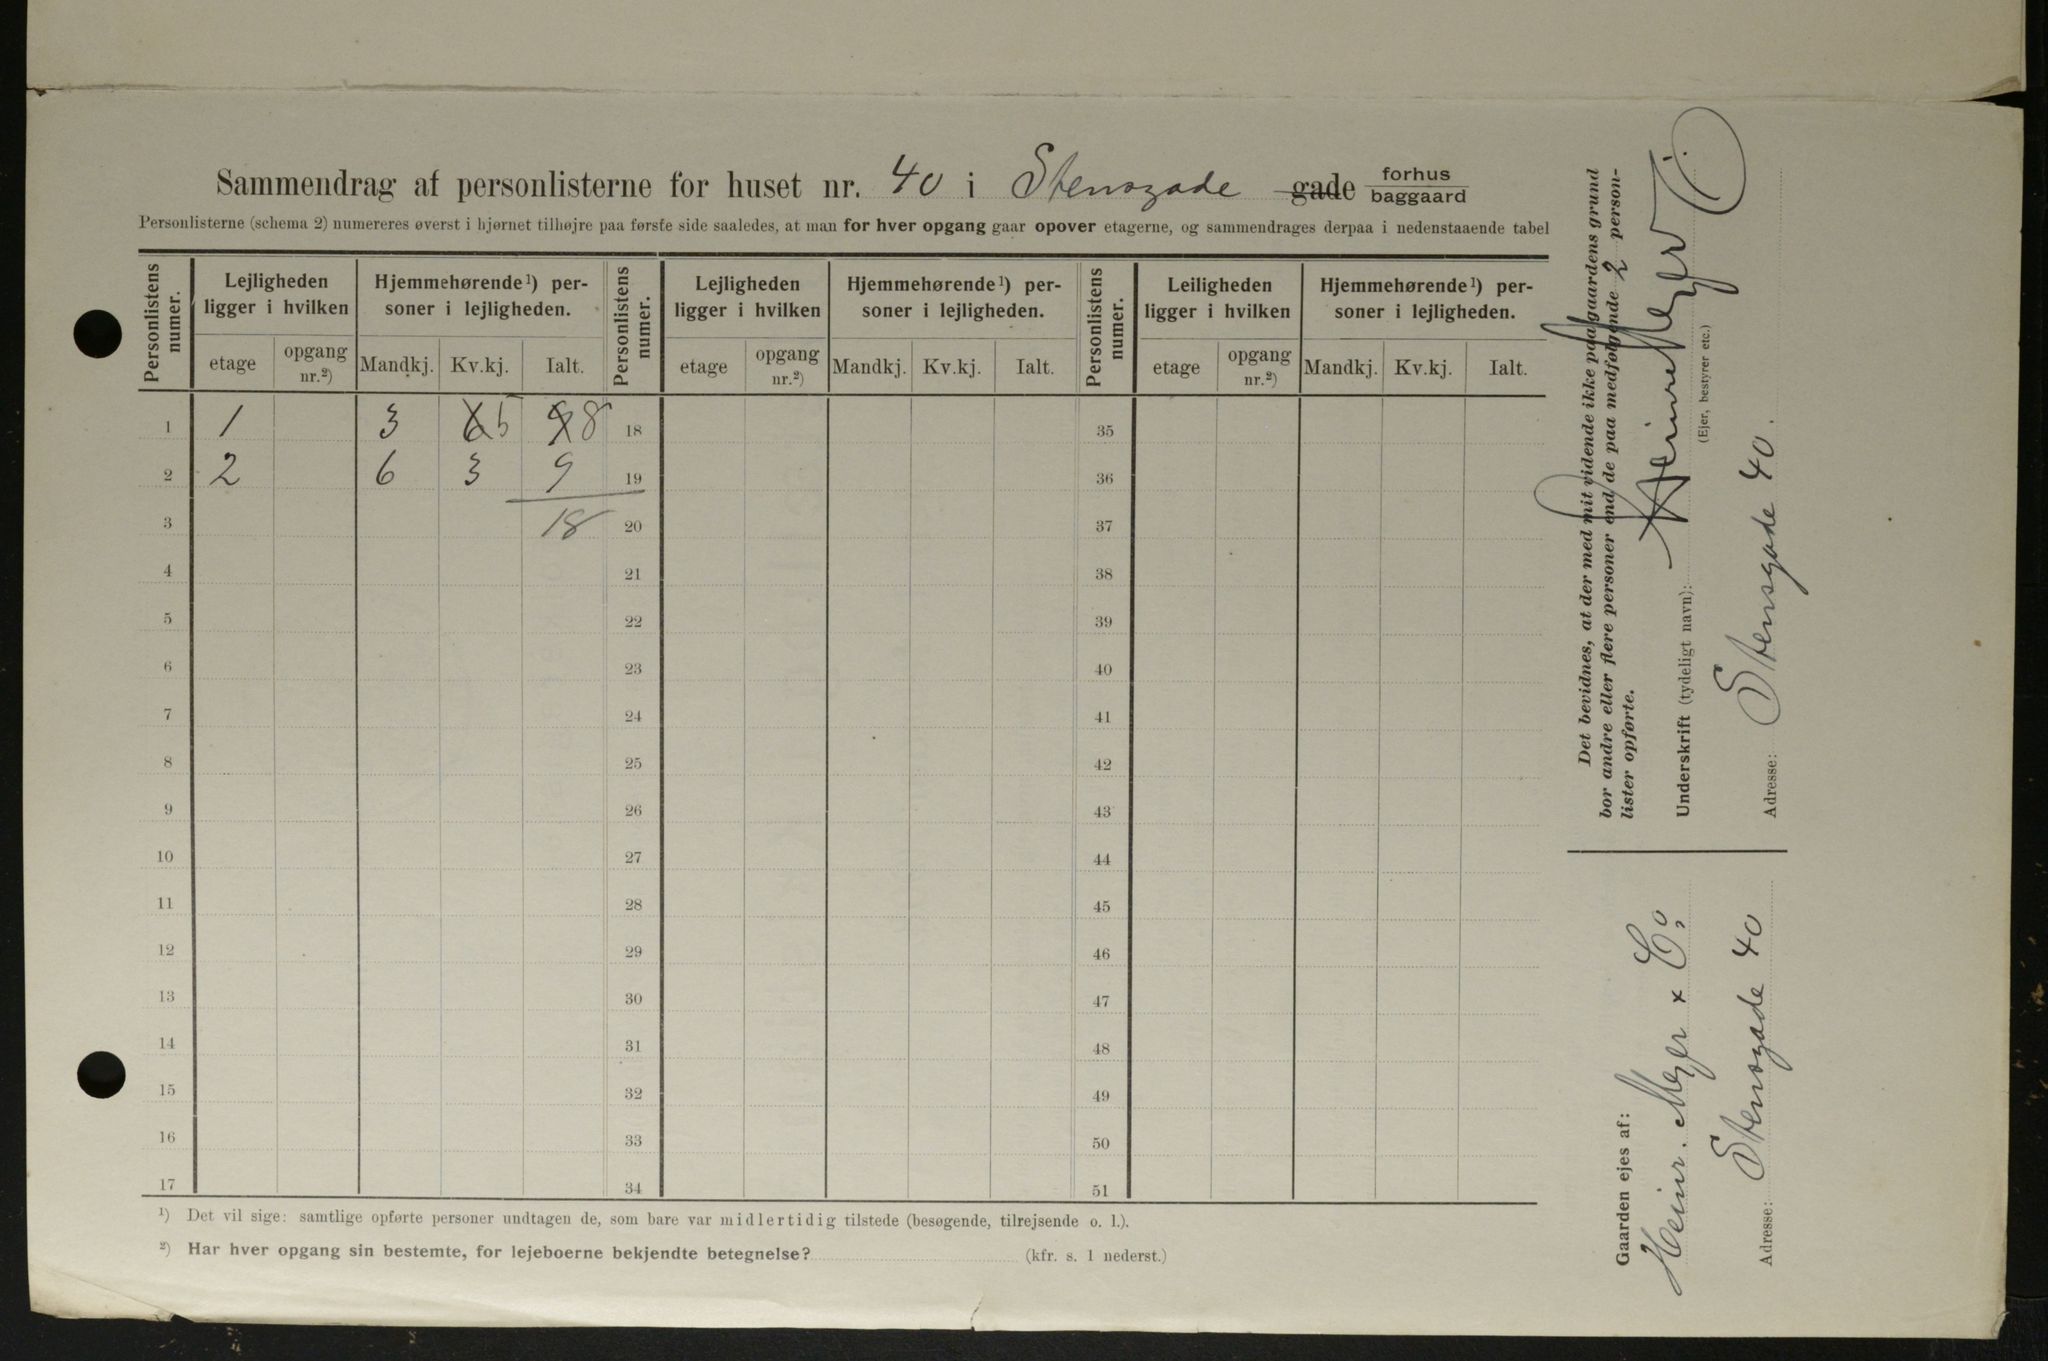 Sammendrag af personlisterne for huset nr. 40 i Stensgade gade forhus baggaard
Personlisterne (schema 2) numereres øverst i hjørnet tilhøjre paa første side saaledes, at man for hver opgang gaar opover etagerne, og sammendrages derpaa i nedenstaaende tabel
Personlistens numer. Lejligheden ligger i hvilken Hjemmehørende¹) personer i lejligheden. Personlistens numer. Lejligheden ligger i hvilken Hjemmehørende¹) personer i lejligheden. Personlistens numer. Leiligheden ligger i hvilken Hjemmehørende¹) personer i lejligheden.
etage opgang nr.²) Mandkj. Kv.kj. Ialt. etage opgang nr.²) Mandkj. Kv.kj. Ialt. etage opgang nr.²) Mandkj. Kv.kj. Ialt.
1 1 3 6 5 9 8 18 35
2 2 6 3 9 19 36
3 18 20 37
4 21 38
5 22 39
6 23 40
7 24 41
8 25 42
9 26 43
10 27 44
11 28 45
12 29 46
13 30 47
14 31 48
15 32 49
16 33 50
17 34 51
¹) Det vil sige: samtlige opførte personer undtagen de, som bare var midlertidig tilstede (besøgende, tilrejsende o. l.).
²) Har hver opgang sin bestemte, for lejeboerne bekjendte betegnelse? (kfr. s. 1 nederst.)
Det bevidnes, at der med mit vidende ikke paa gaardens grund
bor andre eller flere personer end de paa medfølgende 2 person-
lister opførte.
Underskrift (tydeligt navn): Heinr. Meyer
(Ejer, bestyrer etc.)
Adresse: Stensgade 40.
Gaarden ejes af:
Heinr. Meyer & Co
Adresse: Stensgade 40